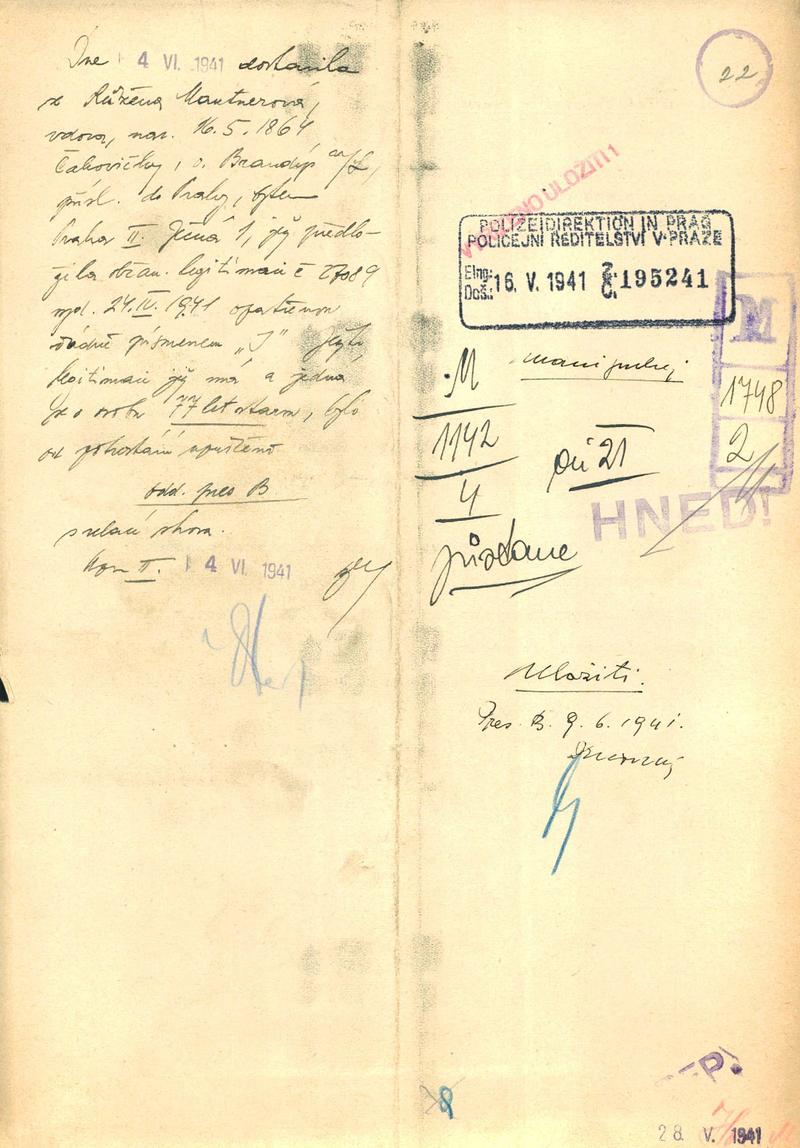 Dne 4 VI. 1941 dostavila
se Růžena Mautnerová,
vdova, nar. 16.5.1864
Čakovičky, o. Brandýs n/L,
přísl. do Prahy, bytem
Praha II. Ječná 1, jež předlo-
žila občan. legitimaci č 27089
24.IV.1941 opatřenou
řádně písmenem „J“ Ježto
legitimaci již má a jedná
se o osobu 77 let starou, bylo
od potrestání upuštěno
odd. pres B
s relací shora.
Kom II. 4 VI. 1941
22
ULOŽITI!
POLIZEIDIREKTION IN PRAG
POLICEJNÍ ŘEDITELSTVÍ V PRAZE
Eing.:
Doš.: 16. V. 1941 Z. Č. 195241
M
1142
4
manipulaci
odd 21
M
1748
2
HNED!
Uložiti.
Pres. B. 9. 6. 1941.
8
28 V. 1941